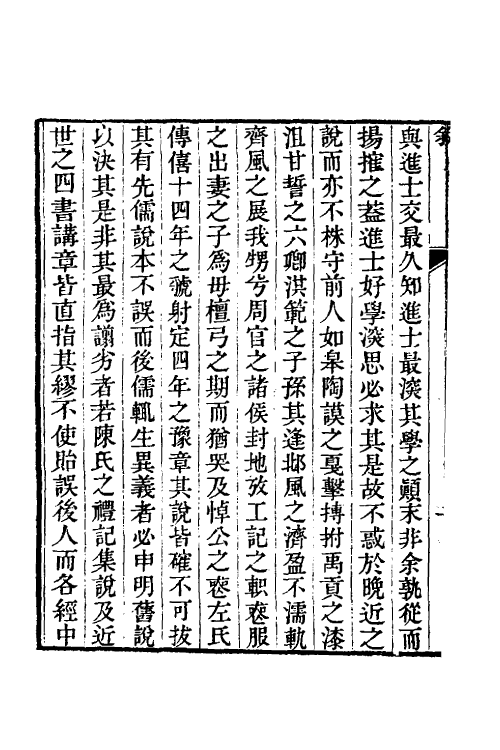 與進士交最久知進士最深其學之顚末非余孰從而
揚搉之葢進士好學深思必求其是故不惑於晚近之
說而亦不株守前人如皋陶謨之戛擊搏拊禹貢之漆
沮甘誓之六卿洪範之子孫其逢邶風之濟盈不濡軌
齊風之展我甥兮周官之諸侯封地攷工記之軹喪服
之出妻之子爲母檀弓之期而猶哭及悼公之喪左氏
傳僖十四年之虢射定四年之豫章其說皆確不可拔
其有先儒說本不誤而後儒輒生異義者必申明舊說
以決其是非其最爲謭劣者若陳氏之禮記集說及近
世之四書講章皆直指其繆不使貽誤後人而各經中